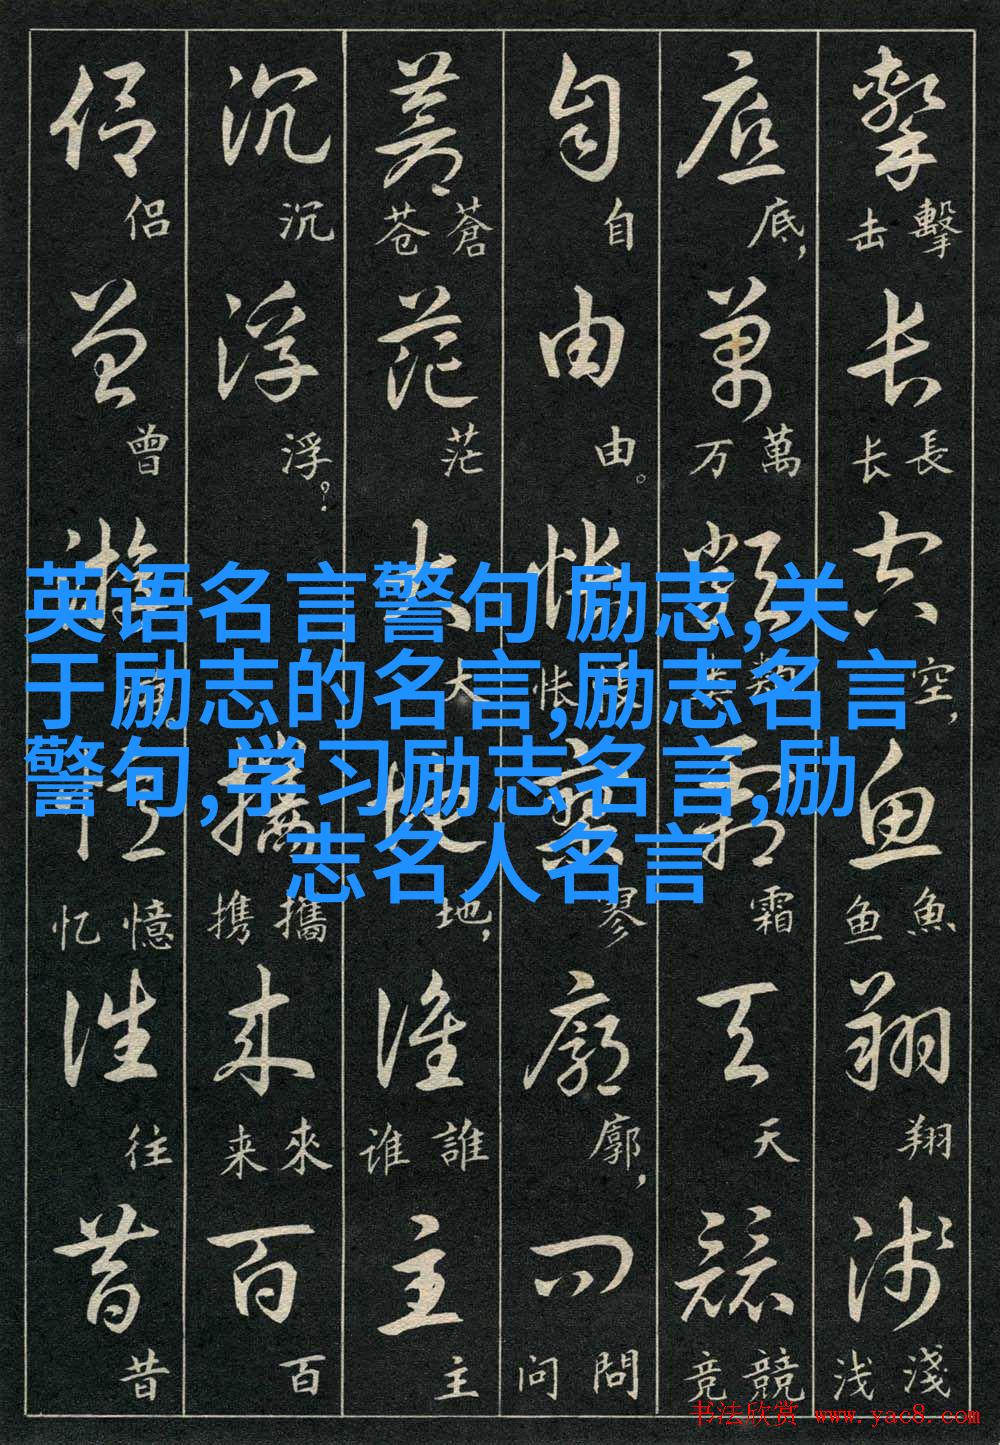 英语名言警句 励志,关
于励志的名言,励志名言
警句,学习励志名言,励
志名人名言
擊長空魚翔淺
擊击長长空,魚鱼翔淺浅
底萬類霜天競
底,萬万類霜天競竞
自由悵寥廓問
自由。悵怅寥廓,問问
蒼茫大地誰主
蒼苍茫大地,誰谁主
沉浮攜來百
沉浮?攜携來来百
侣曾游憶往昔
侣曾憶忆往昔
书法欣赏 www.yac8.com